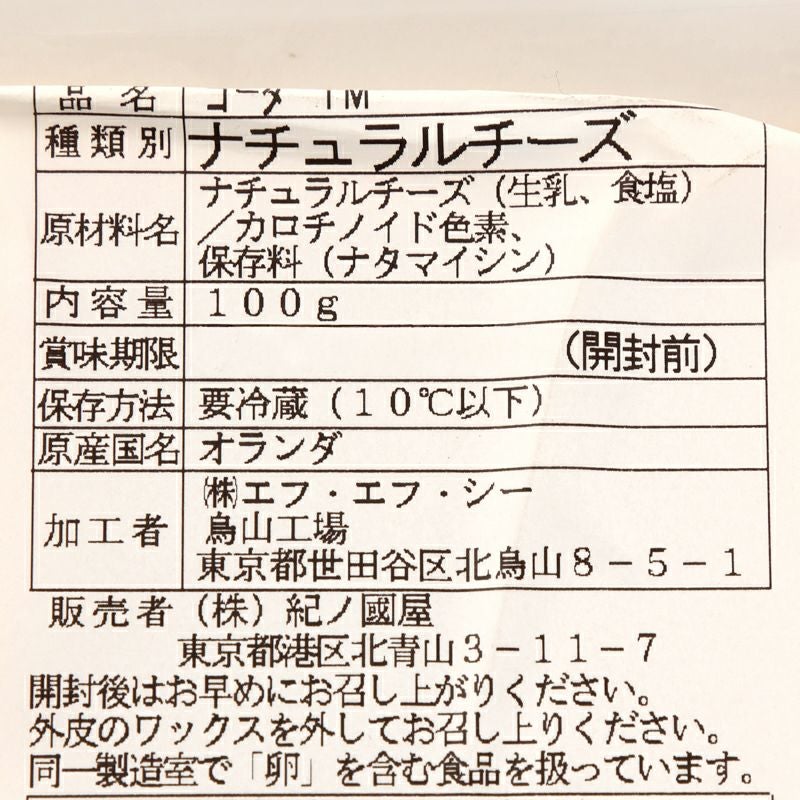 品名 ゴーダ 1M
種類別 ナチュラルチーズ
原材料名 ナチュラルチーズ（生乳、食塩）
／カロチノイド色素、
保存料（ナタマイシン）
内容量 １００ｇ
賞味期限 （開封前）
保存方法 要冷蔵（１０℃以下）
原産国名 オランダ
加工者 ㈱エフ・エフ・シー
烏山工場
東京都世田谷区北烏山８－５－１
販売者（株）紀ノ國屋
東京都港区北青山３－１１－７
開封後はお早めにお召し上がりください。
外皮のワックスを外してお召し上りください。
同一製造室で「卵」を含む食品を扱っています。